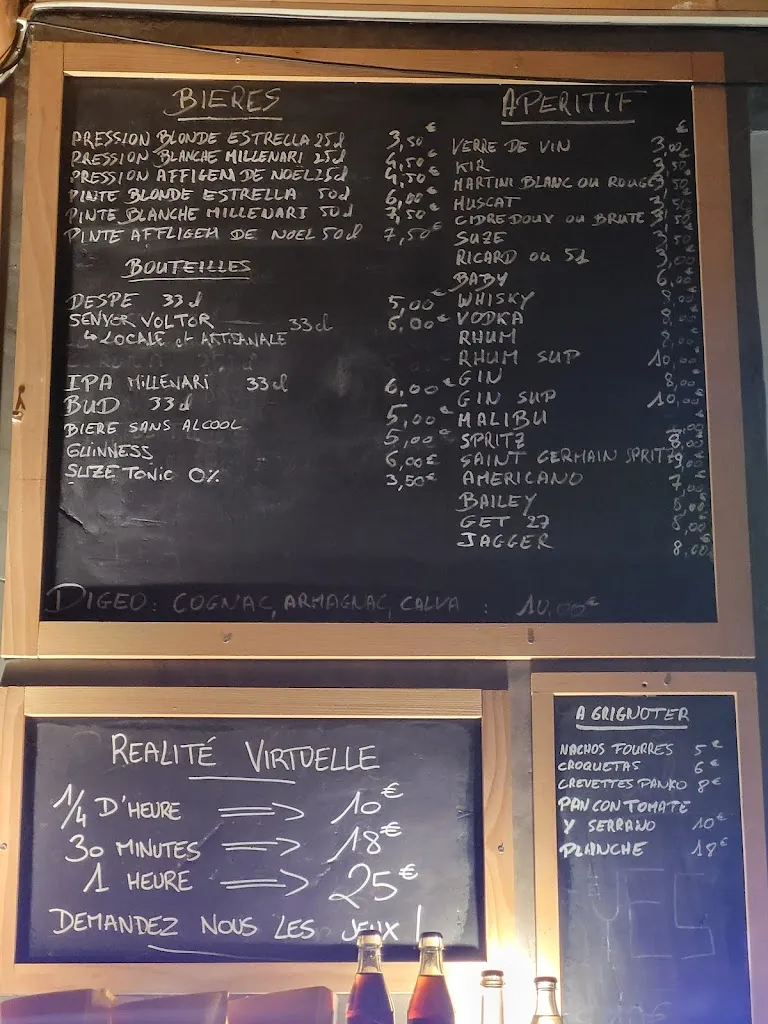 BIERES
PRESSION BLONDE ESTRELLA 25cl 3,50€
PRESSION BLANCHE MILLENARI 25cl 4,50€
PRESSION AFFIGEM DE NOEL 25cl 4,50€
PINTE BLONDE ESTRELLA 50cl 6,00€
PINTE BLANCHE MILLENARI 50cl 7,50€
PINTE AFFLIGEM DE NOEL 50cl 7,50€
BOUTEILLES
DESPE 33cl 5,00€
SENYOR VOLTOR 33cl 6,00€
↳ LOCALE et ARTISANALE
IPA MILLENARI 33cl 6,00€
BUD 33cl 5,00€
BIERE SANS ALCOOL 5,00€
GUINNESS 6,00€
SUZE TONIC 0% 3,50€
APERITIF
€
VERRE DE VIN 3,00€
KIR 3,50€
MARTINI BLANC OU ROUGE 3,50€
MUSCAT 3,50€
CIDRE DOUX OU BRUTE 3,50€
SUZE 3,50€
RICARD OU 51 3,00€
BABY 6,00€
WHISKY
VODKA
RHUM
RHUM SUP 10,00€
GIN 8,00€
GIN SUP 10,00€
MALIBU
SPRITZ 8,00€
SAINT GERMAIN SPRITZ 9,00€
AMERICANO 7,00€
BAILEY 5,00€
GET 27 5,00€
JAGGER 8,00€
DIGEO: COGNAC, ARMAGNAC, CALVA : 10,00€
REALITÉ VIRTUELLE
1/4 D'HEURE => 10€
30 MINUTES => 18€
1 HEURE => 25€
DEMANDEZ NOUS LES JEUX !
A GRIGNOTER
NACHOS FOURRES 5€
CROQUETAS 6€
CREVETTES PANKO 8€
PAN CON TOMATE
Y SERRANO 10€
PLANCHE 18€